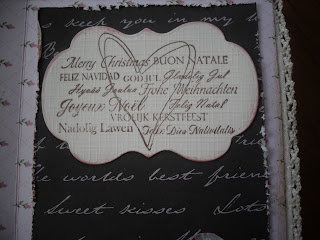 keep you in my
Merry Christmas BUON NATALE
FELIZ NAVIDAD GOD JUL Glaedelig Jul
Hyvää Joulua Frohe Weihnachten
Joyeux Noël Jolig Natal
VROLIJK KERSTFEEST
Nadolig Lawen Dies Natividatis
the worlds best friend
Sweet kisses Lots